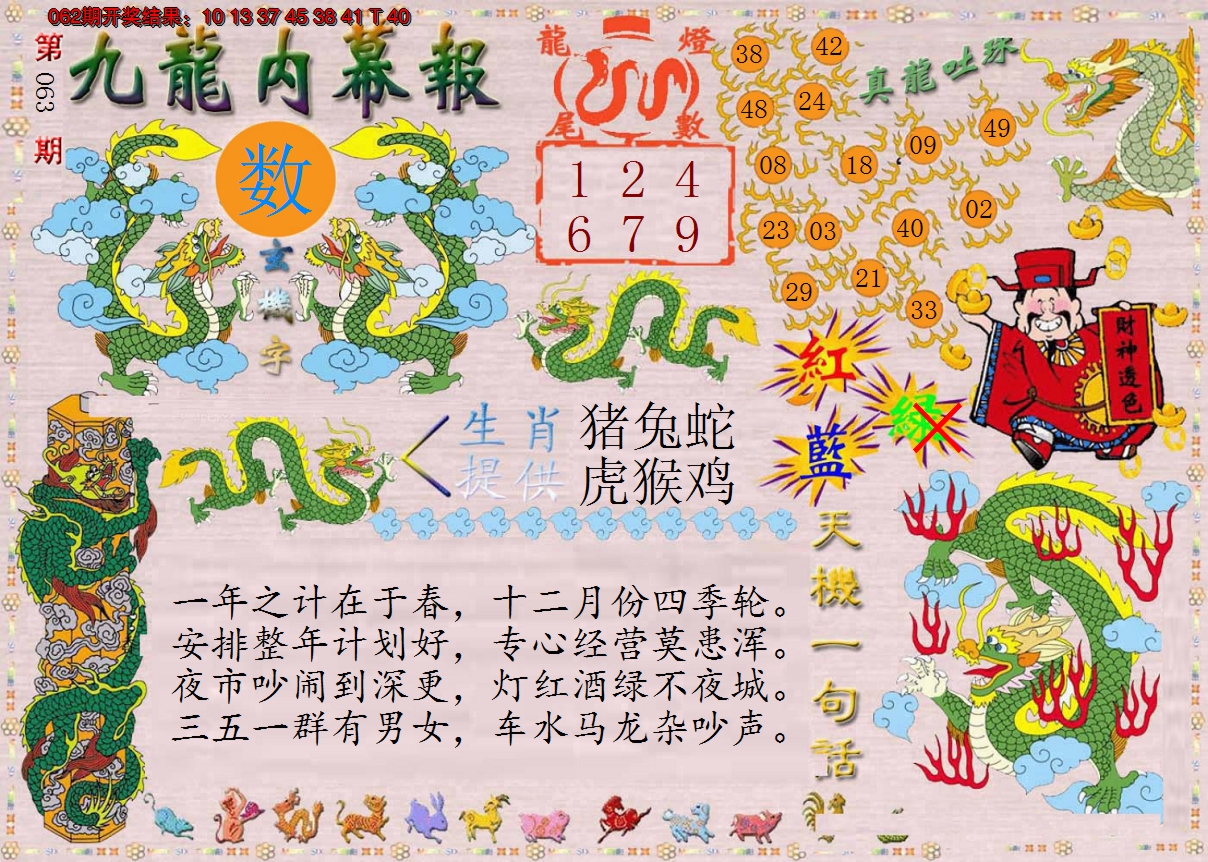 062期开奖结果：10 13 37 45 38 41 T 40
第063期
九龍内幕報
数
玄機字
龍燈
尾數
1 2 4
6 7 9
真龍吐珠
38 42
48 24
08 18 09 49
23 03 40 02
29 21 33
紅
綠
藍
財神透色
生肖 猪兔蛇
提供 虎猴鸡
天機一句話
一年之计在于春，十二月份四季轮。
安排整年计划好，专心经营莫患浑。
夜市吵闹到深更，灯红酒绿不夜城。
三五一群有男女，车水马龙杂吵声。